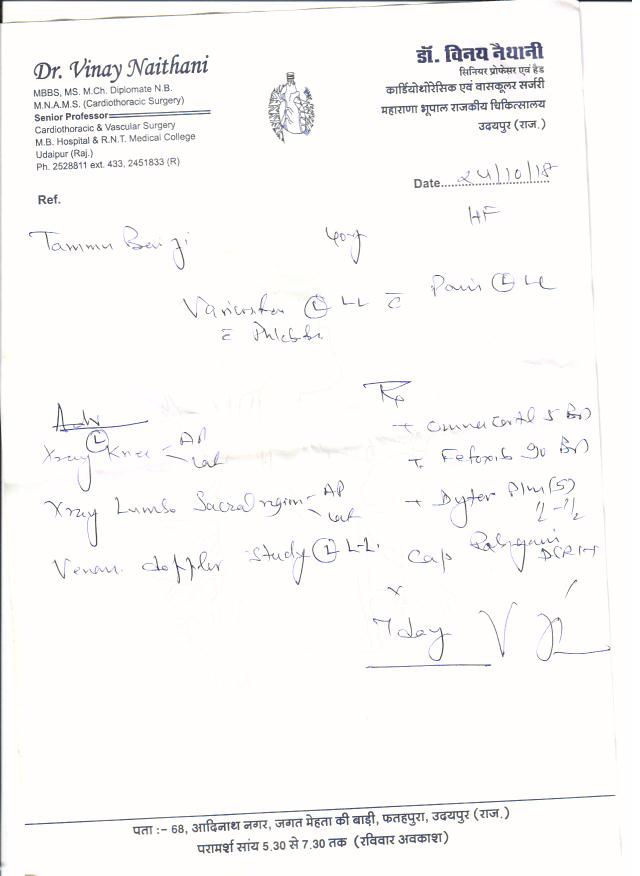 Dr. Vinay Naithani
MBBS, MS. M.Ch. Diplomate N.B.
M.N.A.M.S. (Cardiothoracic Surgery)
Senior Professor
Cardiothoracic & Vascular Surgery
M.B. Hospital & R.N.T. Medical College
Udaipur (Raj.)
Ph. 2528811 ext. 433, 2451833 (R)
डॉ. विनय नैथानी
सिनियर प्रोफेसर एवं हैड
कार्डियोथोरेसिक एवं वासकूलर सर्जरी
महाराणा भूपाल राजकीय चिकित्सालय
उदयपुर (राज.)
Date 24/10/18
Ref.
HF
Tammu 40y
Pain Ⓛ LL
Ⓛ LL c̄
c̄
Adv
Xray Ⓛ Knee AP
Lat
Xray Lumbo Sacral region AP
Lat
Venous doppler study Ⓛ L.L.
Rx
T. 5 BD
T. 90 BD
T. Dytor Plus (5)
Cap
x
7 day
पता :– 68, आदिनाथ नगर, जगत मेहता की बाड़ी, फतहपुरा, उदयपुर (राज.)
परामर्श सांय 5.30 से 7.30 तक (रविवार अवकाश)